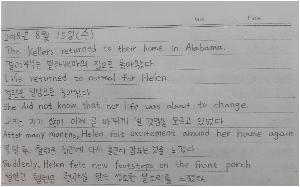 2018년 8월 15일(수)
The Kellers returned to their home in Alabama.
켈러부부는 앨라배마의 집으로 돌아왔다.
Life returned to normal for Helen.
헬렌은 일상으로 돌아왔다.
She did not know that her life was about to change.
그녀는 자기 삶이 이제 곧 바뀌게 될 것임을 모르고 있었다.
After many months, Helen felt excitement around her house again
몇 달 후, 헬렌은 집안에 다시 흥분이 감도는 것을 느꼈다.
Suddenly, Helen felt new footsteps on the front porch
헬렌은 현관을 걷는 새로운 발소리를 느꼈다.